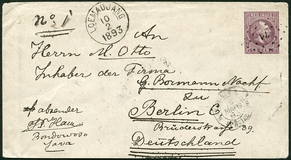 No 1
LOEMADJANG
10
2
1893
An
Herrn M. Otto
Inhaber der Firma
G Bormann Nachf
zu
Berlin C.
Brüderstrasse 39.
Deutschland
absender
Bondowoso
Java